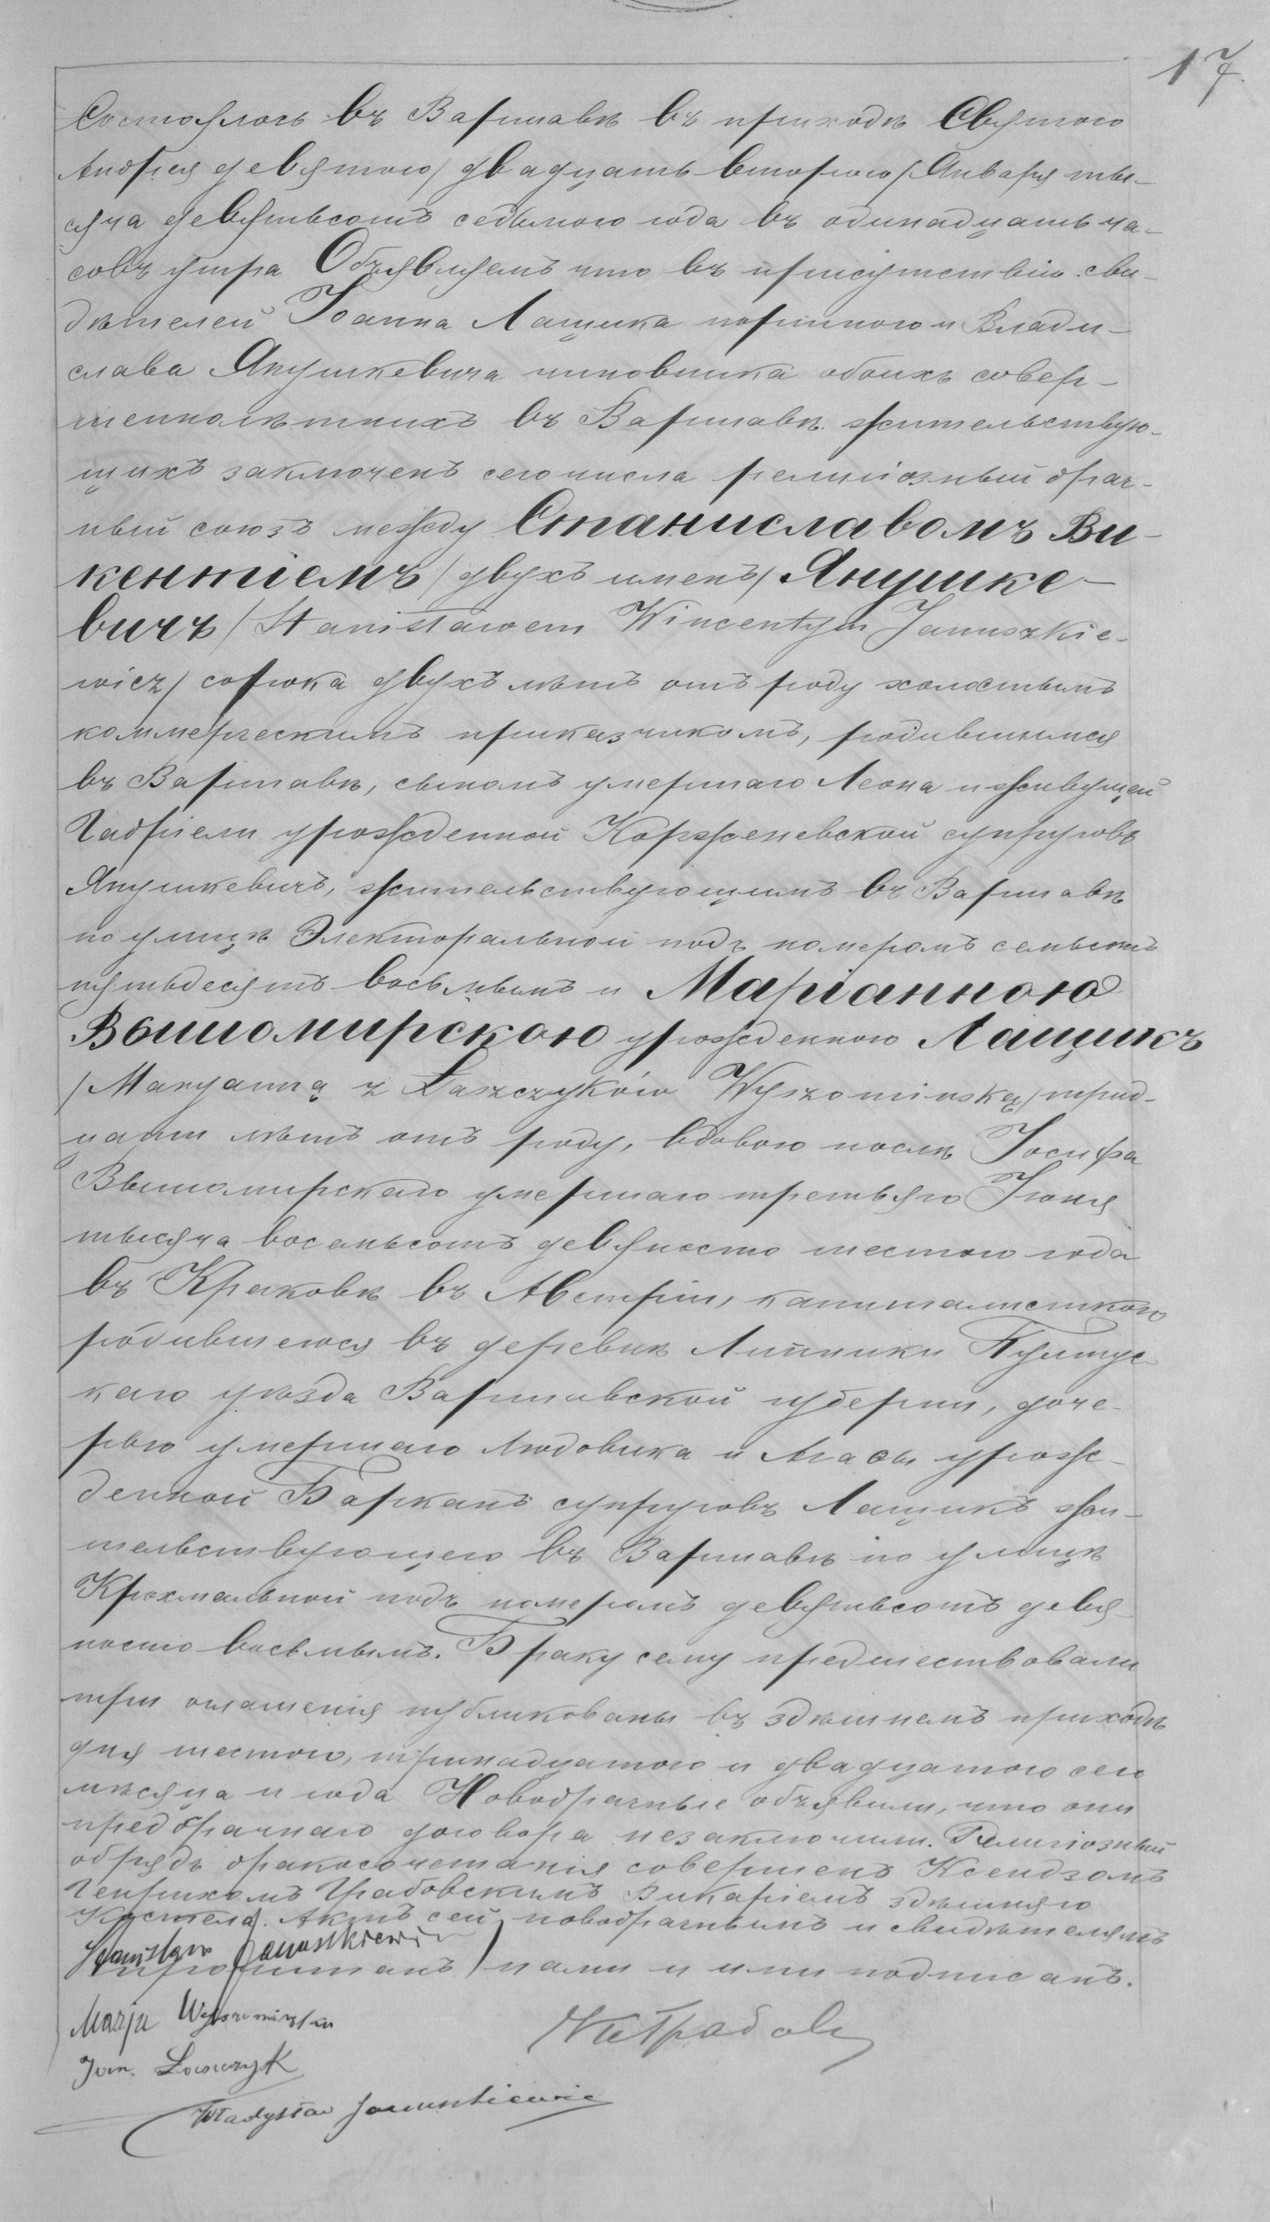 17.
Состоялось въ Варшавѣ въ приходѣ Святого
Андрея девятого/двадцать второго/Января ты-
сяча девятьсотъ седьмого года въ одинадцать ча-
совъ утра Объявляемъ что въ присутствіи сви-
дѣтелей Іоанна Лащика портного и Влади-
слава Янушкевича чиновника обоихъ совер-
шеннолѣтнихъ въ Варшавѣ жительствую-
щихъ заключенъ сего числа религіозный брач-
ный союзъ между Станиславомъ Ви-
кентіемъ /двухъ именъ/ Янушке-
вичъ /Stanisławem Wincentym Januszkie-
wicz/ сорока двухъ лѣтъ отъ роду холостымъ
коммерческимъ приказчикомъ, родившимся
въ Варшавѣ, сыномъ умершаго Леона и живущей
Габріели урожденной Корженевской супруговъ
Янушкевичъ, жительствующимъ въ Варшавѣ
по улицѣ Электоральной подъ номеромъ семьсотъ
пятьдесятъ восьмымъ и Маріанною
Вышомирскою урожденною Лащикъ
/Maryanną z Łaszczyków Wyszomirską/ трид-
цати лѣтъ отъ роду, вдовою послѣ Іосифа
Вышомирскаго умершаго третьяго Іюня
тысяча восемьсотъ девяносто шестого года
въ Краковѣ въ Австріи, капиталисткою
родившеюся въ деревнѣ Липники Пултус-
каго уѣзда Варшавской губерніи, доче-
рью умершаго Людовика и Агаты урож-
денной Барканъ супруговъ Лащикъ жи-
тельствующею въ Варшавѣ по улицѣ
Крохмальной подъ номеромъ девятьсотъ девя-
носто восьмымъ. Браку сему предшествовали
три оглашенія публикованы въ здѣшнемъ приходѣ
дня шестого, тринадцатого и двадцатого сего
мѣсяца и года Новобрачные объявили, что они
предбрачнаго договора незаключили. Религіозный
обрядъ бракосочетанія совершенъ Ксендзомъ
Генрихомъ Грабовскимъ Викаріемъ здѣшняго
Костела. Актъ сей новобрачнымъ и свидѣтелямъ
прочитанъ нами и ими подписанъ.
Stanisław Januszkiewicz
Marja Wyszomirska
Jan Łaszczyk
Władysław Januszkiewicz